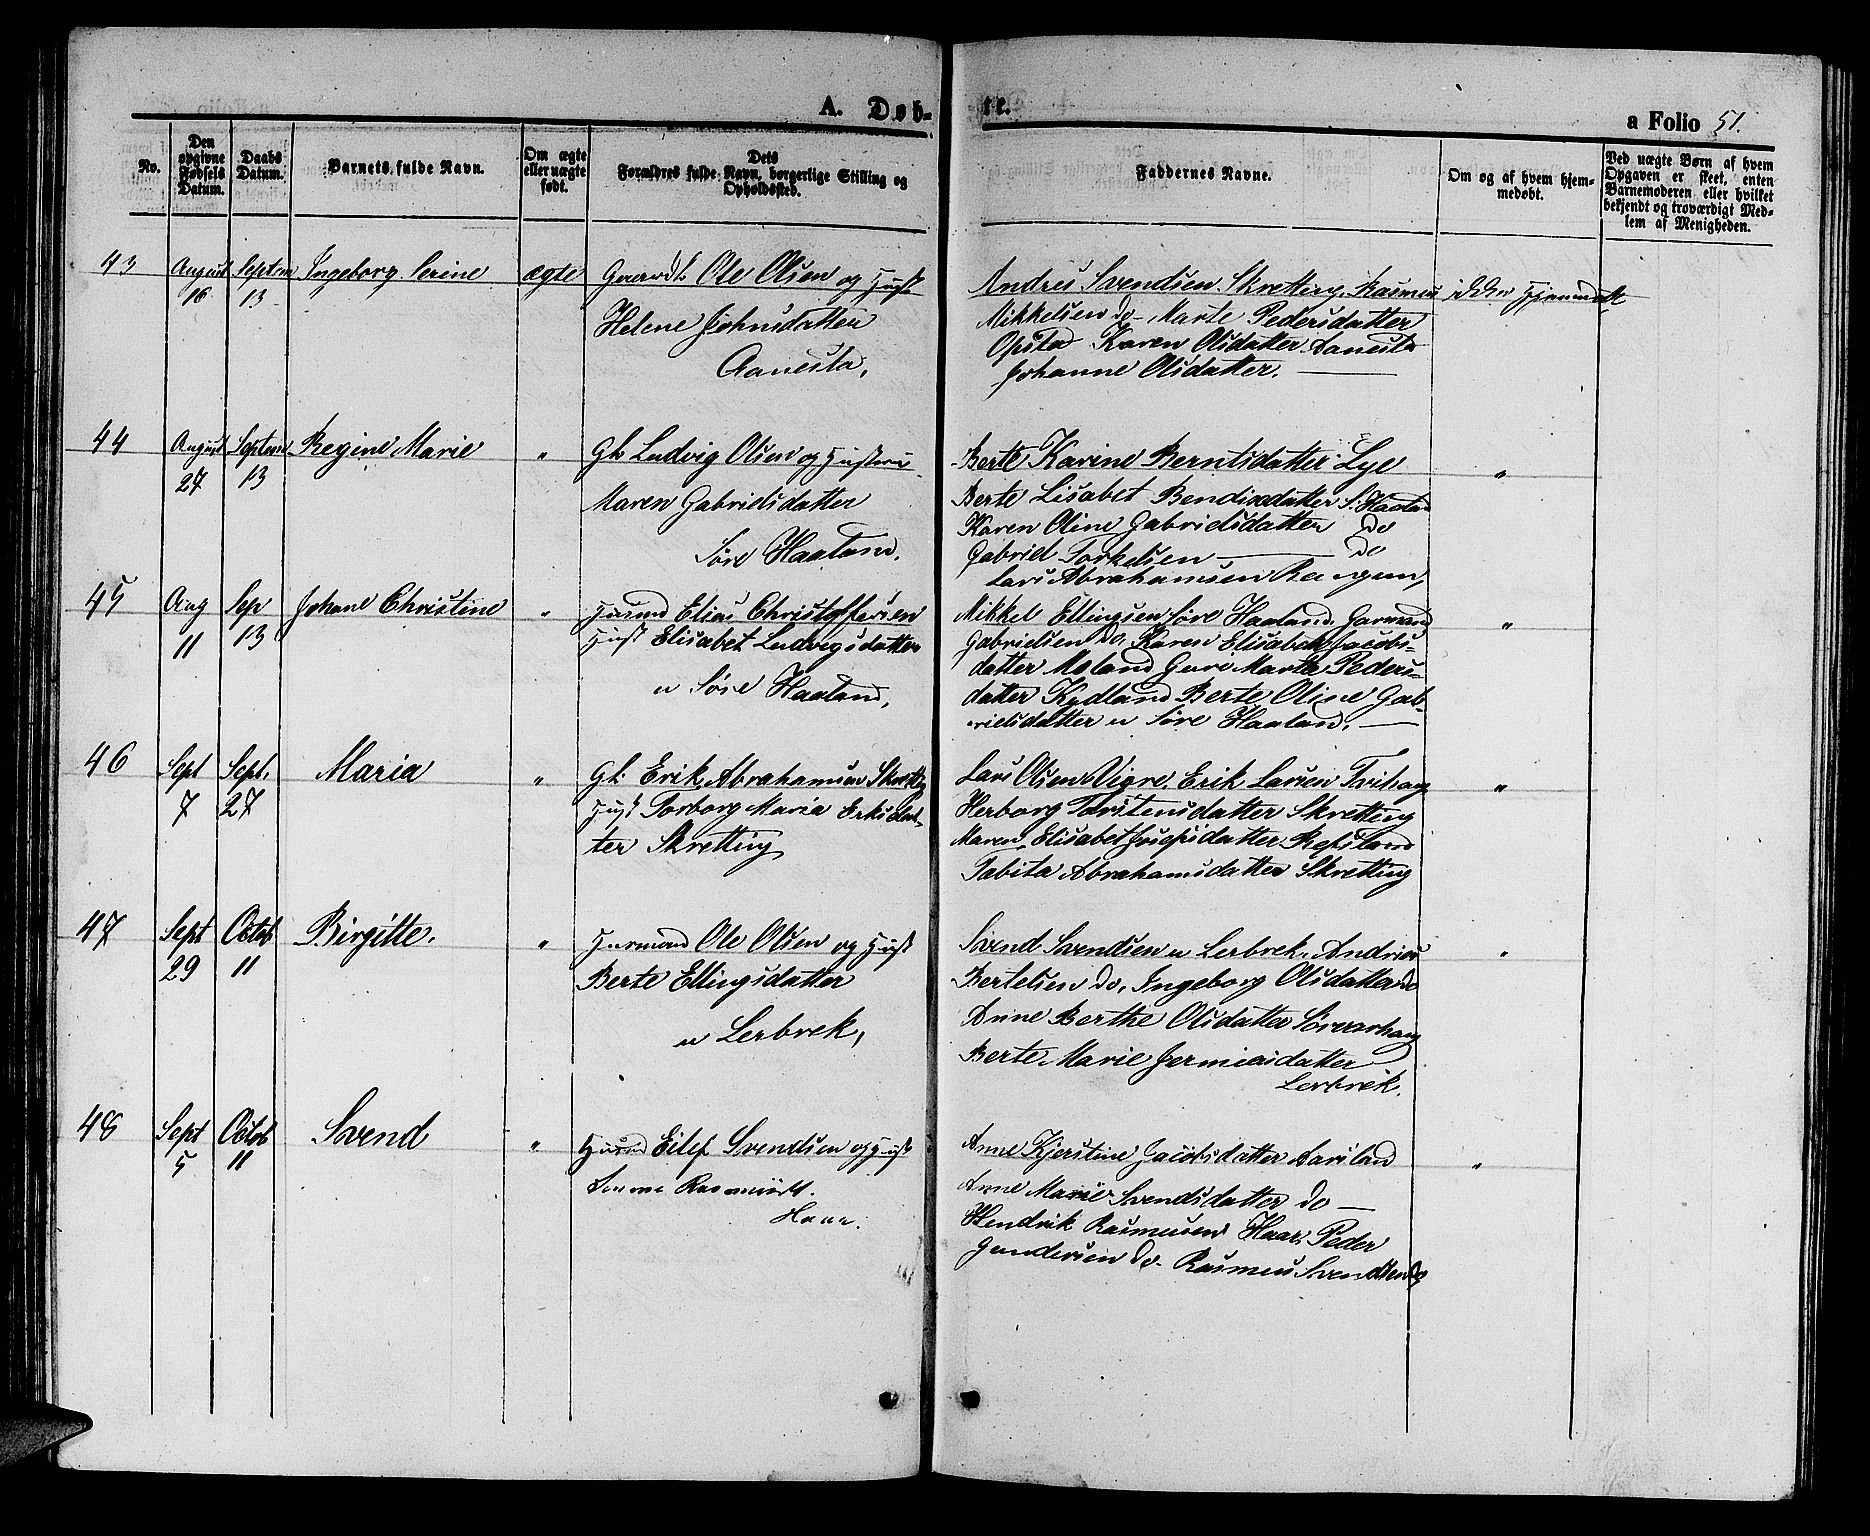 A. Døb-
te.
a Folio 51.
No.
Den opgivne Fødsels Datum.
Daabs Datum.
Barnets fulde Navn.
Om ægte eller uægte født.
Dets Forældres fulde Navn, borgerlige Stilling og Opholdssted.
Faddernes Navne.
Om og af hvem hjem-
medøbt.
Ved uægte Børn af hvem
Opgaven er skeet, enten
Barnemoderen eller hvilket
bekjendt og troværdigt Med-
lem af Menigheden.
43 August 16 Septem 13 Ingeborg Serine ægte
Ole Olsen og Hust
Helene Johnsdatter
Aanesta,
Andres Svendsen Skretting, Rasmus
Mikkelsen do Marte Pedersdatter
Opsta Karen Olsdatter Aanesta
Johanne Olsdatter. —
ikke hjemmedøbt
44 August 27 Septem 13 Regine Marie "
Gb Ludvig Olsen og Hustru
Maren Gabrielsdatter
Søre Haaland,
Berte Karine Berntsdatter Lye
Berte Lisabet Bendixdatter S. Haaland
Karen Oline Gabrielsdatter do
Gabriel Torkelsen — do
Lars Abrahamsen
"
45 Aug 11 Sep 13 Johane Christine "
Husmd Elias Christoffersen
Hust Elisabet Ludvigsdatter
u Søre Haaland,
Mikkel Ellingsen Søre Haaland, Garmand
Gabrielsen do, Karen Elisabet Jacobs-
datter Moland Marta Peders-
datter Kydland Berte Oline Gab-
rielsdatter u Søre Haaland. —
"
46 Sept 7 Sept. 27 Maria "
Gb: Erik Abrahamsen Skretting
Hust Torborg Maria Eriksdat-
ter Skretting
Lars Olsen Vigre, Erik Larsen Tvihaug
Herborg Torstensdatter Skretting
Maren Elisabet Josepsdatter Refsland
Tabita Abrahamsdatter Skretting
"
47 Sept 29 Octob 11 Birgitte. "
Husmand Ole Olsen og Hust
Berte Ellingsdatter
u Lerbrek,
Svend Svendsen u Lerbrek, Andreas
Bertelsen do, Ingeborg Olsdatter do
Anne Berthe Olsdatter Sørvarhaug
Berte Marie Jermiasdatter
Lerbrek.
"
48 Sept 5 Octob 11 Svend "
Husmd Eilef Svendsen og Hust
Rasmusdt.
Haar.
Anne Kjerstine Jacobsdatter Aarsland
Anne Marie Svendsdatter do —
Hendrik Rasmusen Haar, Peder
Gundersen do. Rasmus Svendsen do
"